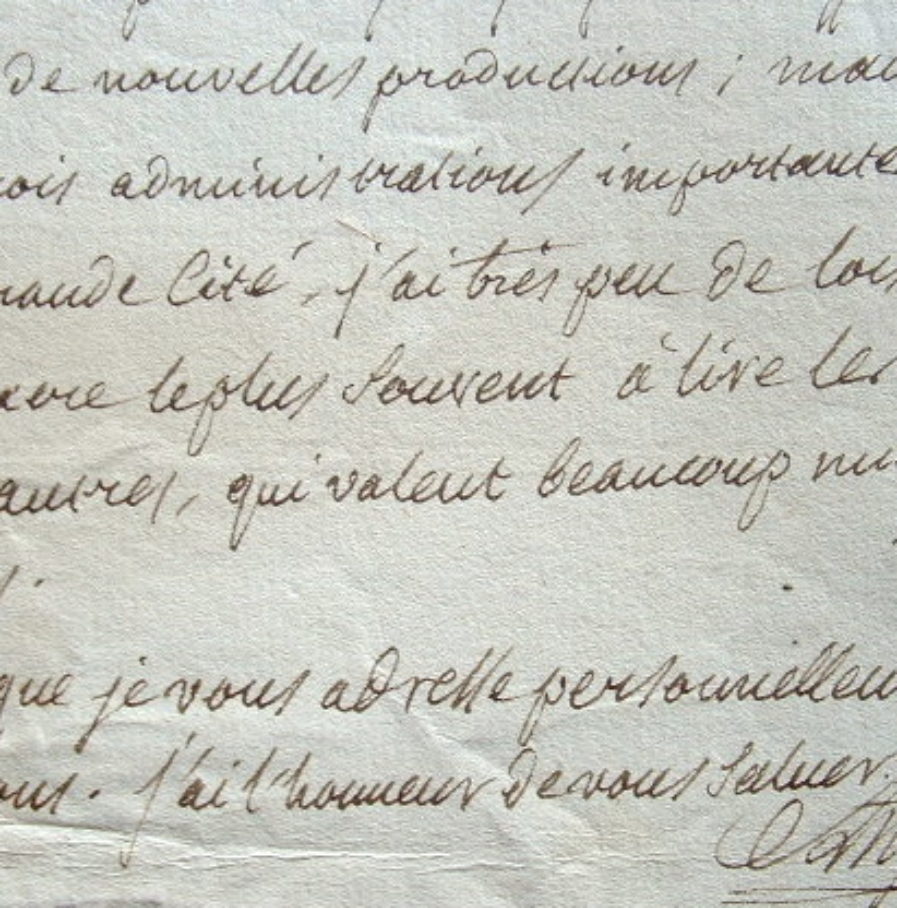 de nouvelles productions; mai
ois administrations importante
rande Cité, j'ai très peu de lois
uvre le plus souvent à lire les
autres, qui valent beaucoup mi
que je vous adresse personnellem
ous. j'ai l'honneur de vous saluer.